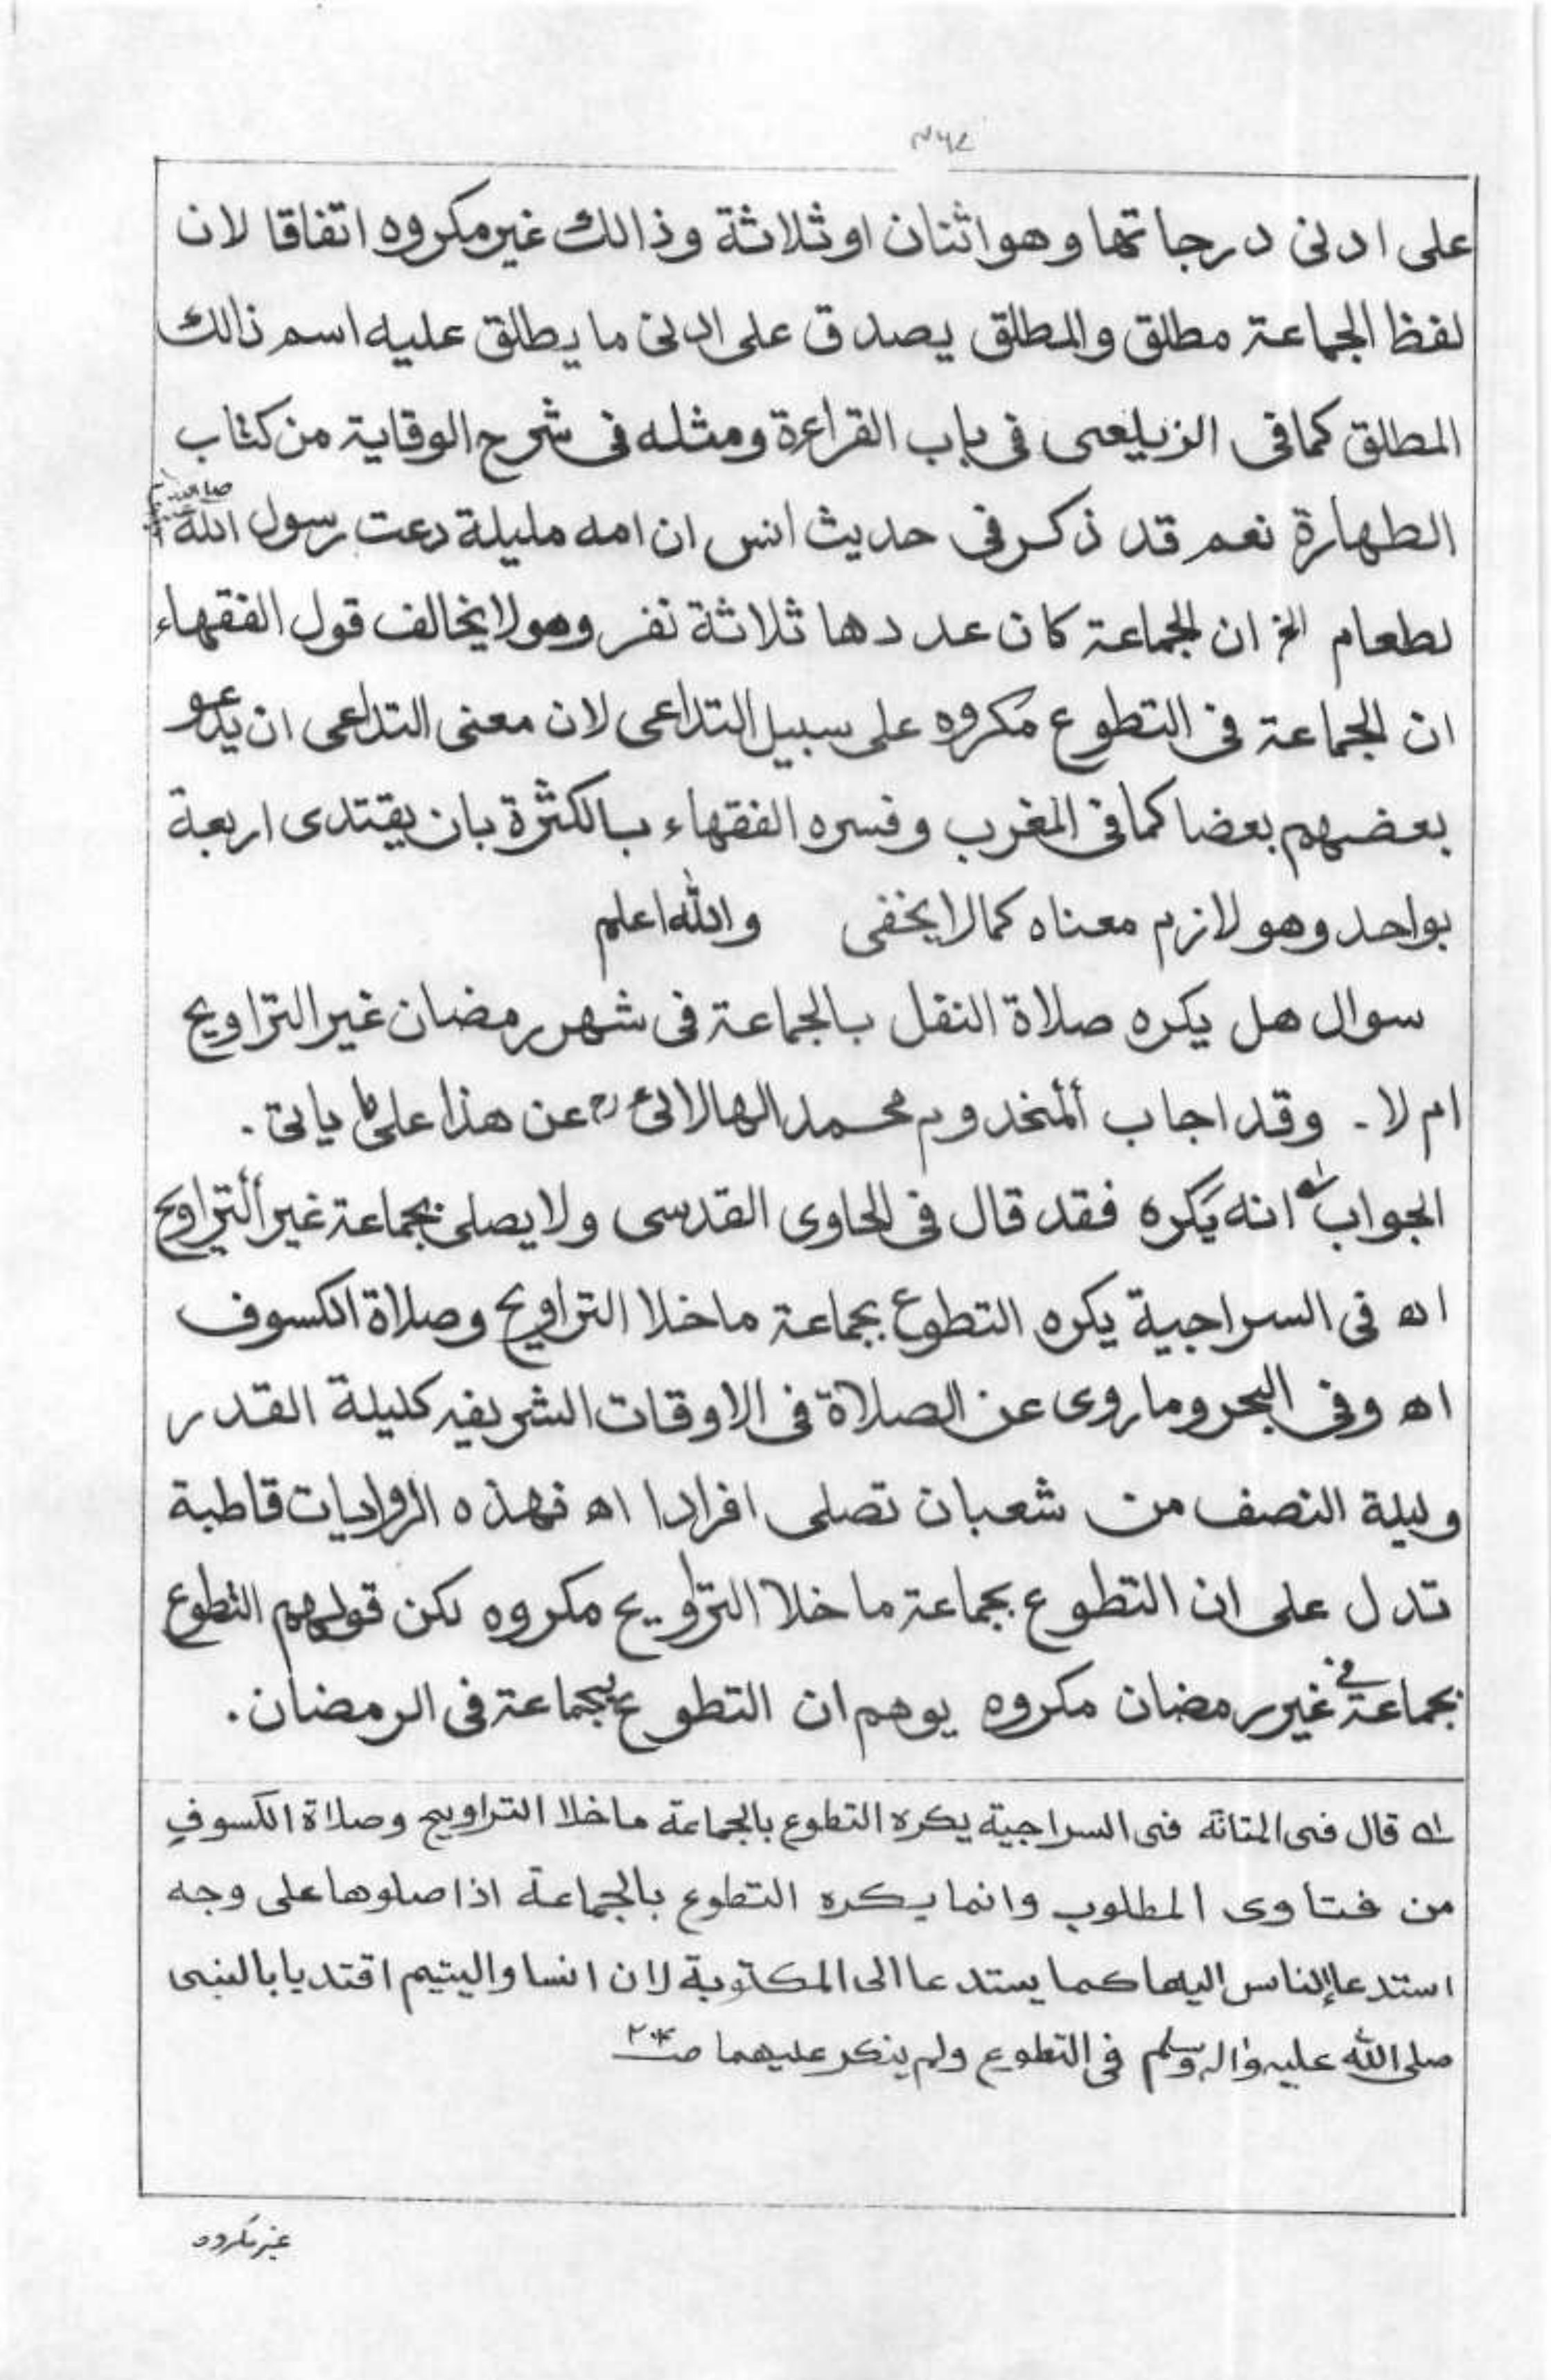 على ادنى درجاتها وهو اثنان او ثلاثة وذالك غير مكروه اتفاقا لان
لفظ الجماعة مطلق والمطلق يصدق على ادنى ما يطلق عليه اسم ذالك
المطلق كما فى الزيلعى فى باب القراءة ومثله فى شرح الوقاية من كتاب
الطهارة نعم قد ذكر فى حديث انس ان امه مليلة دعت رسول الله
لطعام الخ ان الجماعة كان عددها ثلاثة نفر وهو لا يخالف قول الفقهاء
ان الجماعة فى التطوع مكروه على سبيل التداعى لان معنى التداعى ان يدعو
بعضهم بعضا كما فى المغرب وفسره الفقهاء بالكثرة بان يقتدى اربعة
بواحد وهو لازم معناه كما لا يخفى والله اعلم
سوال هل يكره صلاة النفل بالجماعة فى شهر رمضان غير التراويح
ام لا ـ وقد اجاب ألمخدوم محمد الهالائى رح عن هذا على ما ياتى .
الجواب له انه يَكره فقد قال فى الحاوى القدسى ولا يصلى بجماعة غير ألتراويح
اه فى السراجية يكره التطوع بجماعة ما خلا التراويح وصلاة الكسوف
اه وفى البحر وما روى عن الصلاة فى الاوقات الشريفه كليلة القدر
وليلة النصف من شعبان تصلى افرادا اه فهذه الروايات قاطبة
تدل على ان التطوع بجماعة ما خلا التراويح مكروه لكن قولهم التطوع
بجماعة فى غير رمضان مكروه يوهم ان التطوع بجماعة فى الرمضان .
له قال فى المتانة فى السراجية يكره التطوع بالجماعة ما خلا التراويح وصلاة الكسوف
من فتاوى المطلوب وانما يكره التطوع بالجماعة اذا صلوها على وجه
استدعا الناس اليها كما يستدعا الى المكتوبة لان انسا واليتيم اقتديا بالنبى
صلى الله عليه واله وسلم فى التطوع ولم ينكر عليهما صـ
غير مكروه